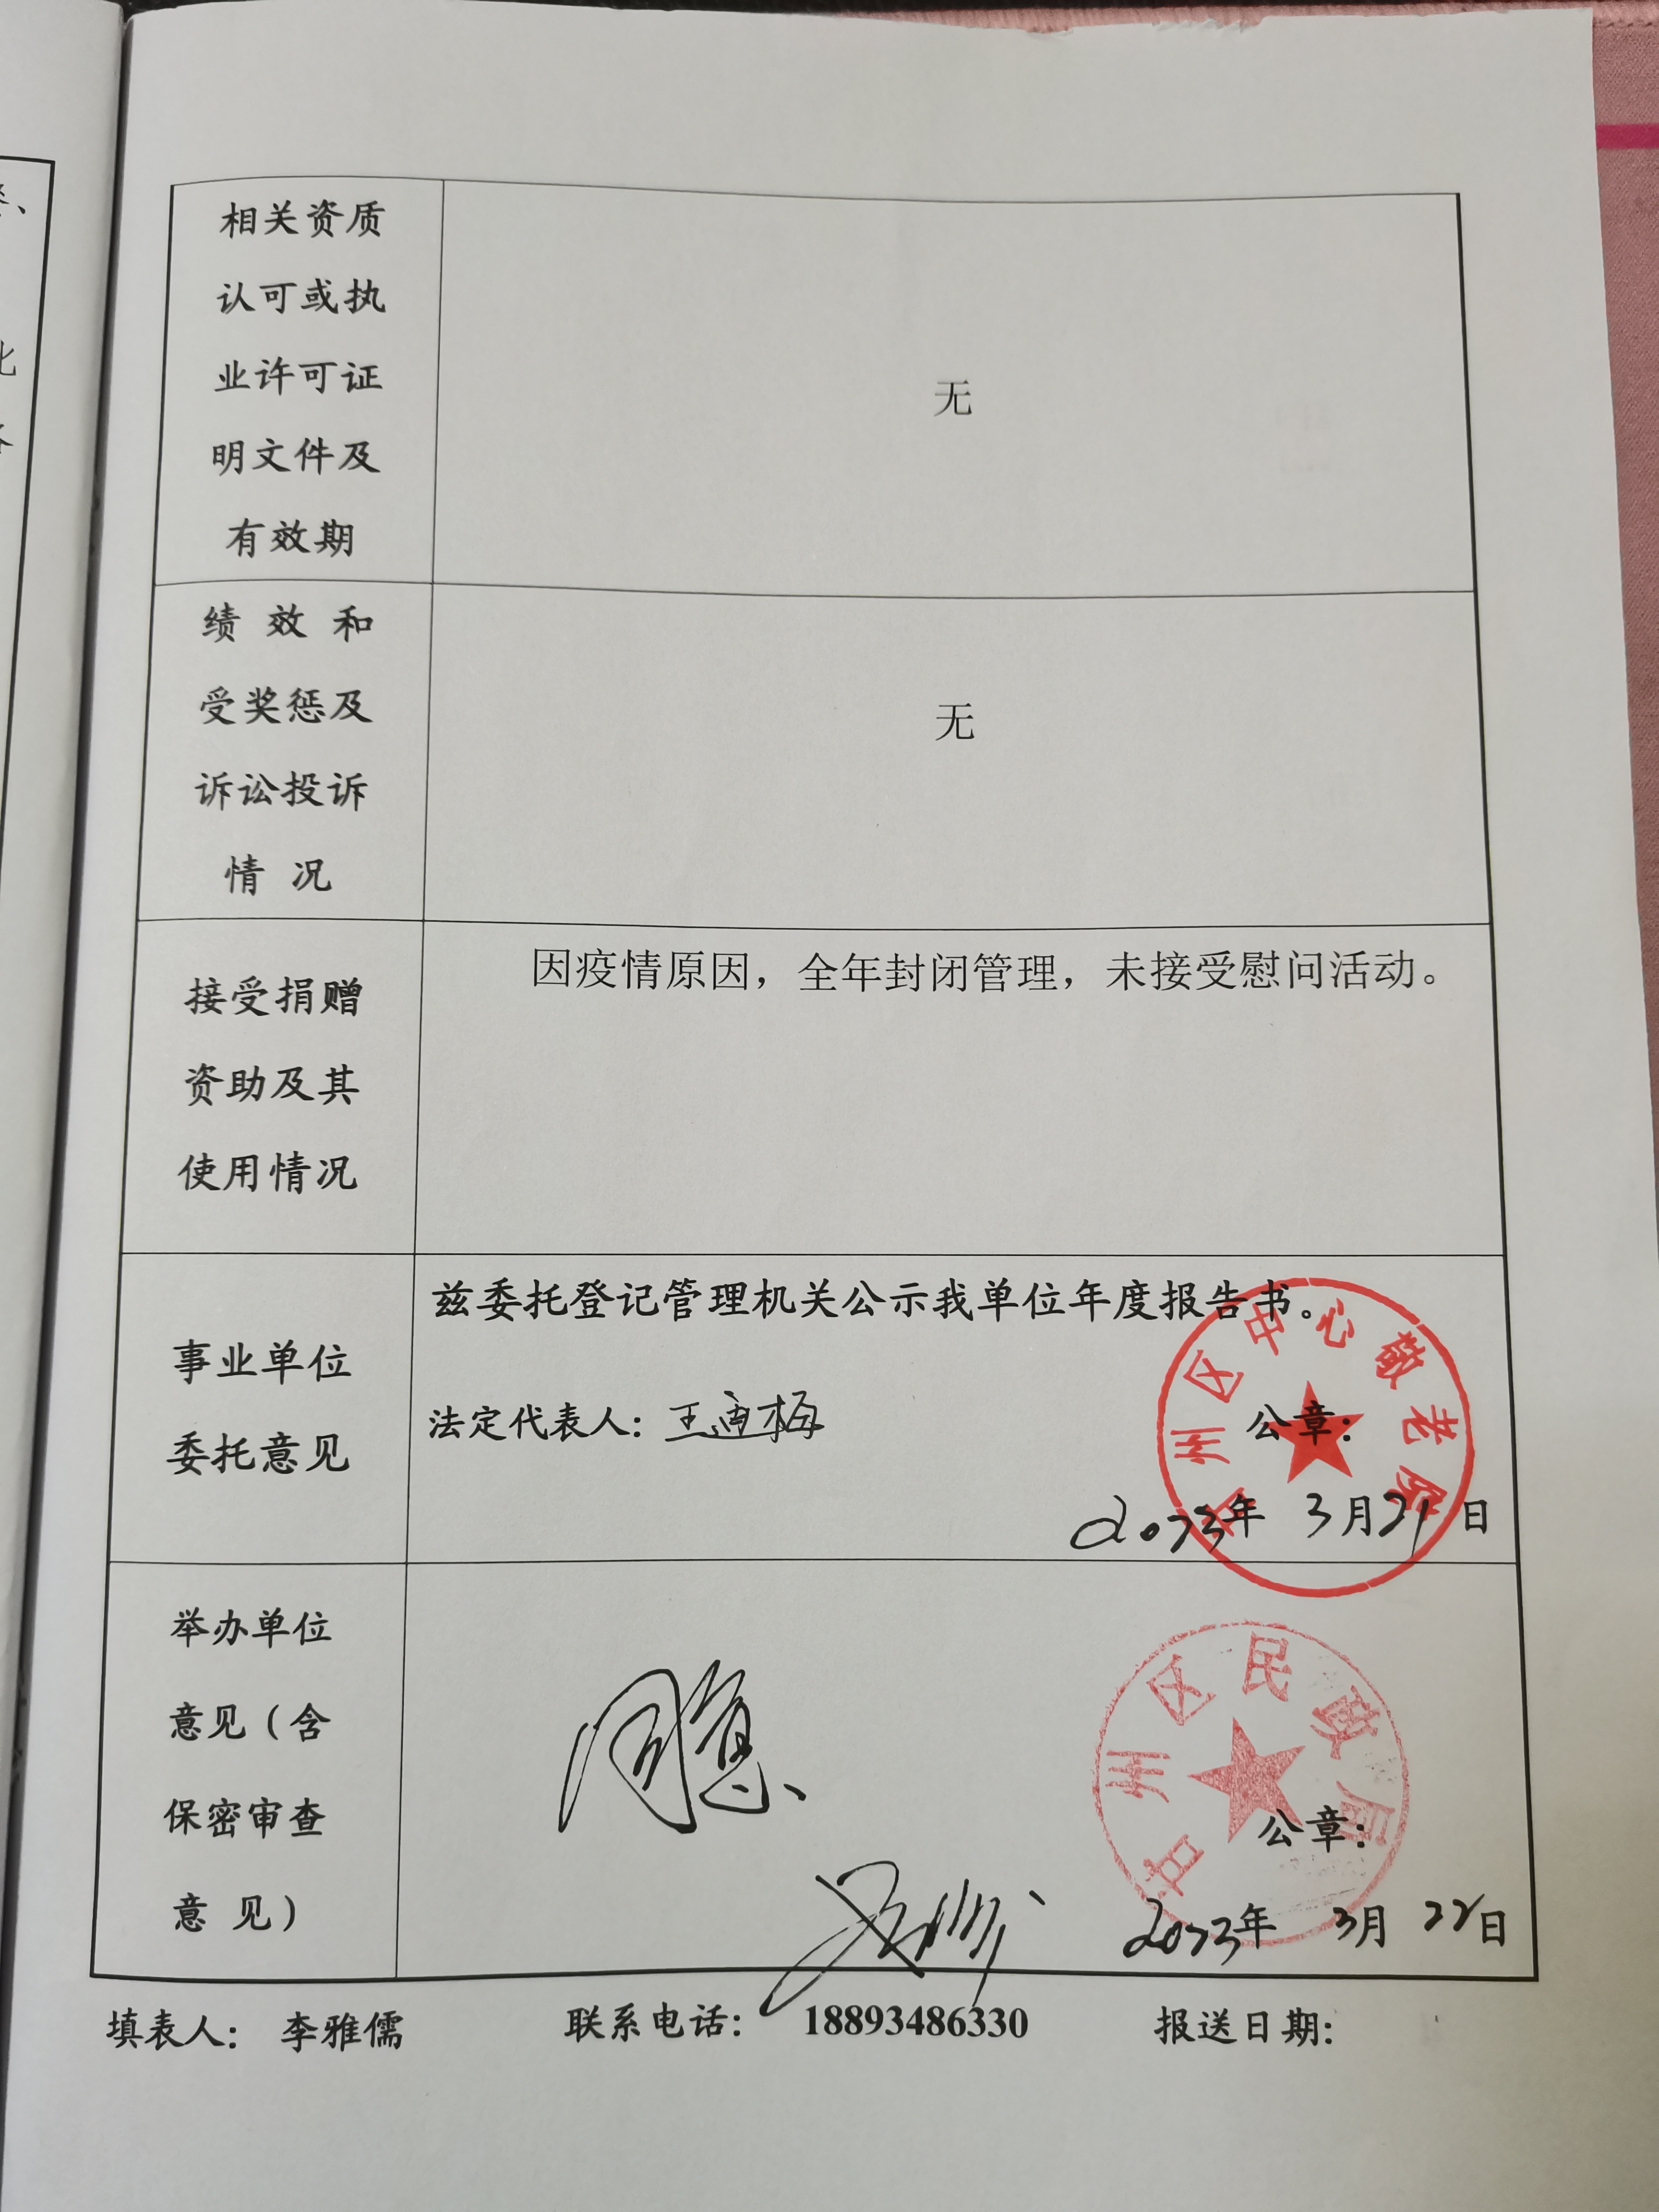 相关资质
认可或执
业许可证
明文件及
有效期
无
绩 效 和
受奖惩及
诉讼投诉
情 况
无
接受捐赠
资助及其
使用情况
因疫情原因，全年封闭管理，未接受慰问活动。
事业单位
委托意见
兹委托登记管理机关公示我单位年度报告书。
法定代表人：王
公章：
甘州区中心敬老院
2023年 3月21日
举办单位
意见（含
保密审查
意 见）
同意
甘州区民政局
公章：
2023年 3月 22日
填表人： 李雅儒 联系电话： 18893486330 报送日期：